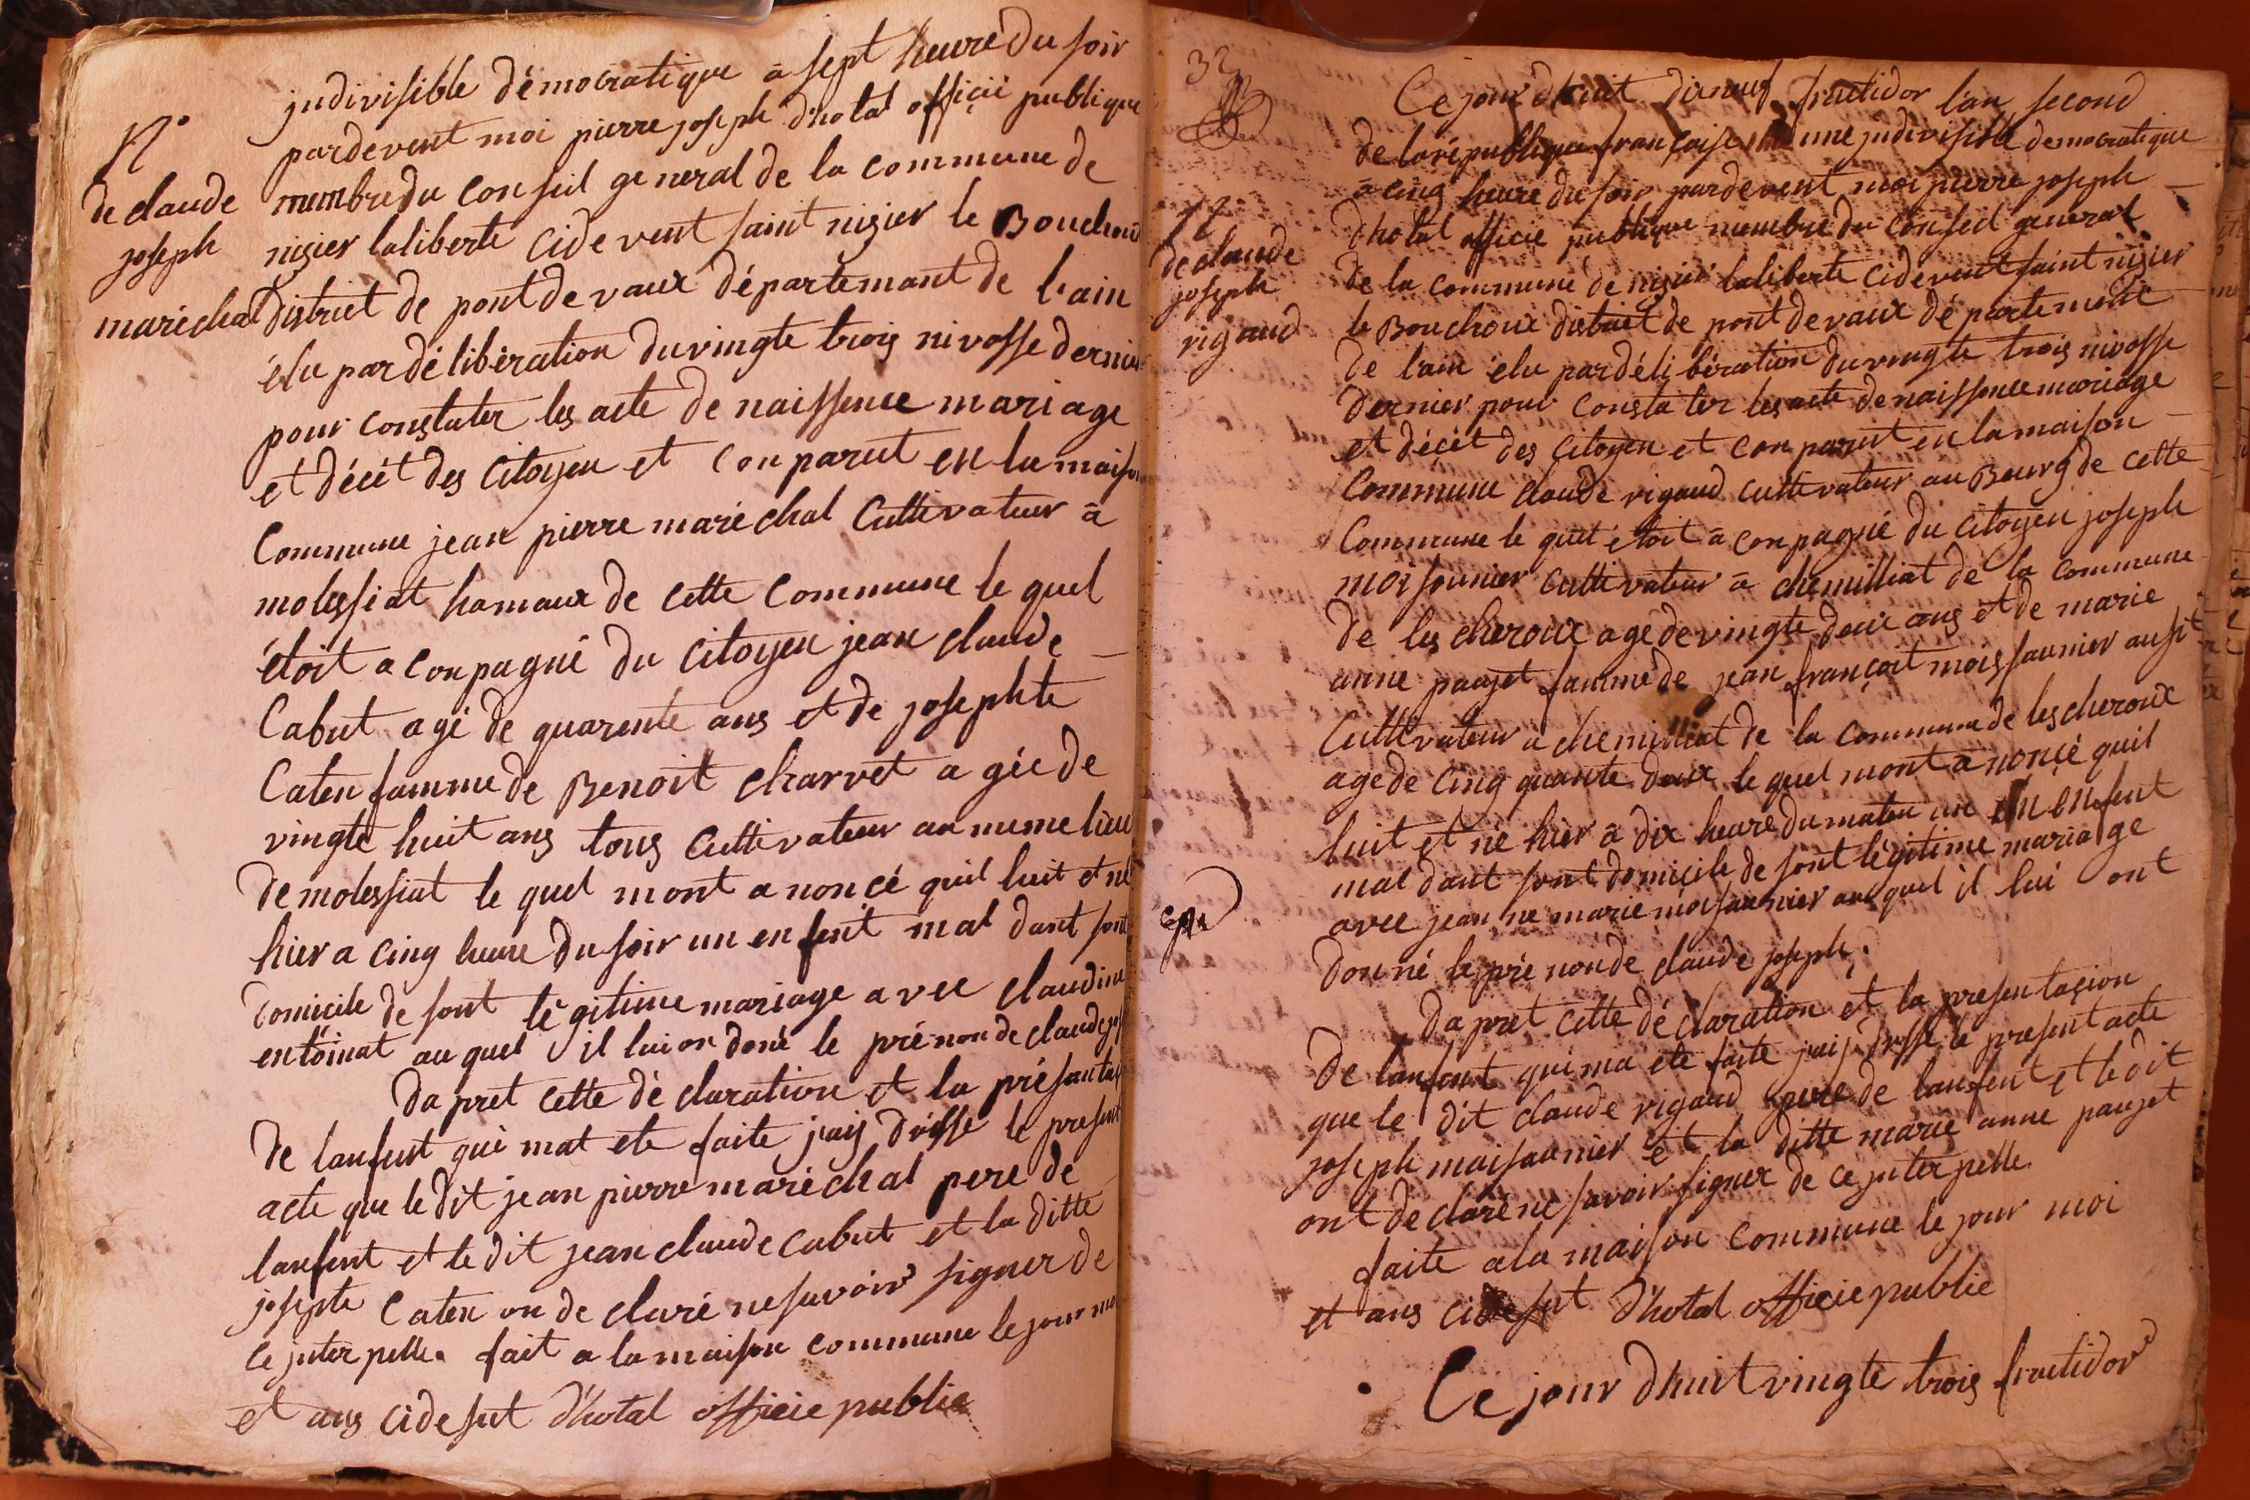 indivisible démocratique a sept heure du soir
pardevent moi pierre joseph dhotal officié publique
membre du conseil general de la commune de
nizier laliberte cidevent saint nizier le Bouchoux
district de pont de vaux départemant de lain
élu par délibération du vingte trois nivosse dernier
pour constater les acte de naissence mariage
et décét des citoyen et conparut en la maison
Commune jean pierre maréchal Cultivateur a
molessiat hamaux de cette Commune le quel
étoit a conpagné du citoyen jean claude
Cabut agé de quarente ans et de josephte
Caten famme de Benoit charvet agée de
vingte huit ans tous Cultivateur au meme lieu
de molessiat le quel mont a noncé quil luit et né
hier a cinq heure du soir un enfent mal dant sont
domicile de sont légitime mariage avec claudine
entoinat au quel il luion doné le prénon de claude jos
da pret cette déclaration et la présantas
de lanfent qui mat ete faite jais drésse le present
acte que le dit jean pierre maréchal pere de
lanfent et le dit jean claude cabut et la ditte
josepte Caten on de claré ne savoir signer de
ce juterpelle. fait a la maison commune le jour moi
et ans cidesut d'hotal officie public
N°
de claude
joseph
maréchal
32
Ce jour dhuit dixneuf fructidor lan second
de la république française une judivisible democratique
a cinq heure du soir pardevent moi pierre joseph
dhotal officie publique membre du conseil general
de la commune de nizier laliberte cidevent saint nizier
le Bouchoux district de pont de vaux département
de lain élu par déli bération du vingte trois nivosse
dernier pour constater les acte de naissence mariage
et décét des citoyen et conparut en la maison
Commune claude rigaud cultivateur au Bourg de cette
Commune le quel étoit a conpagné du citoyen joseph
moisonnier cultivateur a chemilliat de la commune
de les cheroux age de vingte deux ans et de marie
anne paujet famme de jean françoit moissaunier ausit
Cultivateur a chemilliat de la commune de lescheroux
age de cinq quante deux le quel mont a noncé quil
luit et né hier a dix heure du maten un enfent
mal dant sont domicile de sont légitime mariage
avec jeanne marie moisaunier auquel il lui ont
donné le pré non de claude joseph.
da pret cette dé claration et la presentasion
de lanfent qui ma ete faite jais drésse le present acte
que le dit claude rigaud pere de lanfent et le dit
joseph moisaunier et la ditte marie anne paujet
ont de claré ne savoir signer de ce juterpelle.
faite a la maison commune le jour moi
et ans cidesut d'hotal officie public
Ce jour dhuit vingte trois fructidor
N
de claude
joseph
rigaud